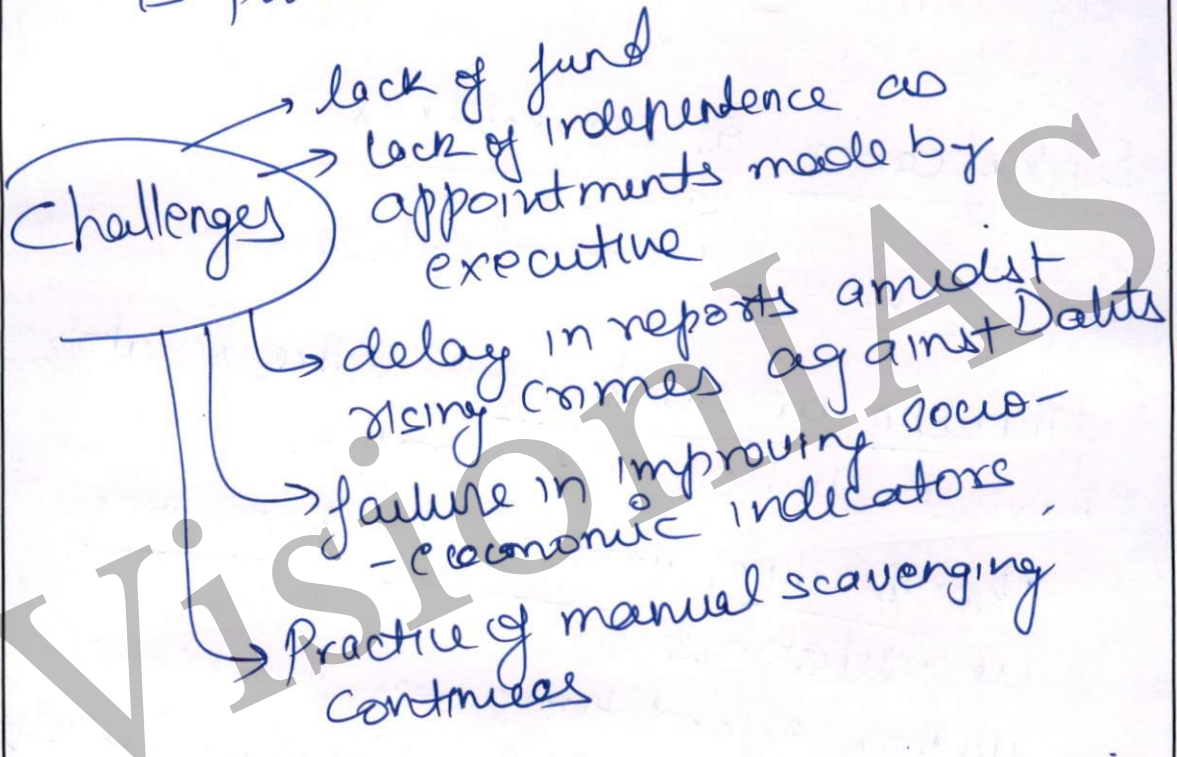 lack of fund
Challenges
lack of independence as
appointments made by
executive
delay in reports amidst
rising crimes against Dalits
failure in improving socio-
-economic indicators
Practice of manual scavenging
continues
VisionIAS